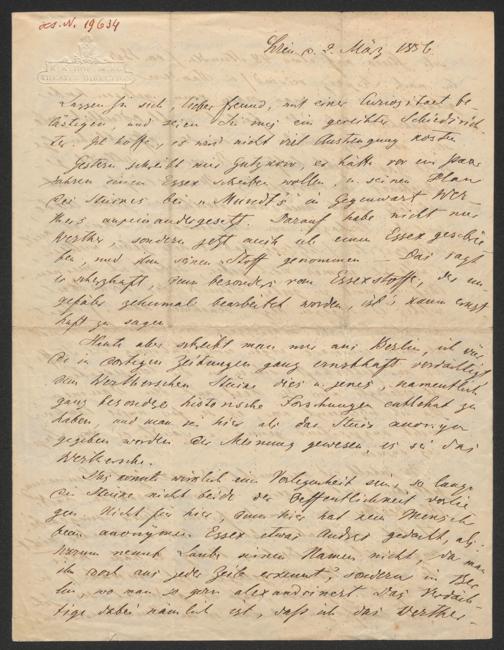 H.I.N. 19634
Wien d. 2. März 1856
Lassen Sie sich, lieber Freund, mit einer Curiosität be-
lästigen, und seien Sie mir ein gerechter Schiedsrich-
ter. Ich hoffe, es wird nicht viel Anstrengung kosten
Gestern schreibt mir Gutzkow, er hätte vor ein paar
Jahren einen Essex schreiben wollen, u. seinen Plan
des Stückes bei „Mundt's" in Gegenwart Wer-
thers auseinandergesetzt. Darauf habe nicht nur
Werther, sondern jetzt auch ich einen Essex geschrie
ben, und ihm seinen Stoff genommen — Das sagt
er scherzhaft, denn besonders vom Essexstoffe, der un
gefähr zehnmal bearbeitet worden, ist's kaum ernst
haft zu sagen
Heute aber schreibt man mir aus Berlin, ich wür
de in dortigen Zeitungen ganz ernsthaft verdächtigt
vom Wertherschen Stücke dies u. jenes, namentlich
ganz besondre historische Forschungen entlehnt zu
haben, und man sei hier als das Stück anonym
gegeben worden der Meinung gewesen, es sei das
Werthersche.
Dies könnte wirklich ein Verlegenheit sein, so lange
die Stücke nicht beide der Oeffentlichkeit vorlie
gen Nicht für hier, denn hier hat kein Mensch
beim anonymen Essex etwas Andres gedacht, als:
warum nennt Laube seinen Namen nicht, da man
ihn doch aus jeder Zeile erkennt, sondern in Ber
lin, wo man so gern alexandrinert. Das Verdäch-
tige dabei nämlich ist, daß ich das Werther-